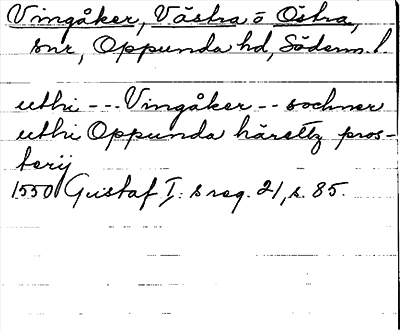 Vingåker, Västra o Östra,
snr, Oppunda hd, Söderm. l.
uthi --- Vingåker -- sochner
uthi Oppunda häretz pros-
terij
1550 Gustaf I:s reg. 21, s. 85.